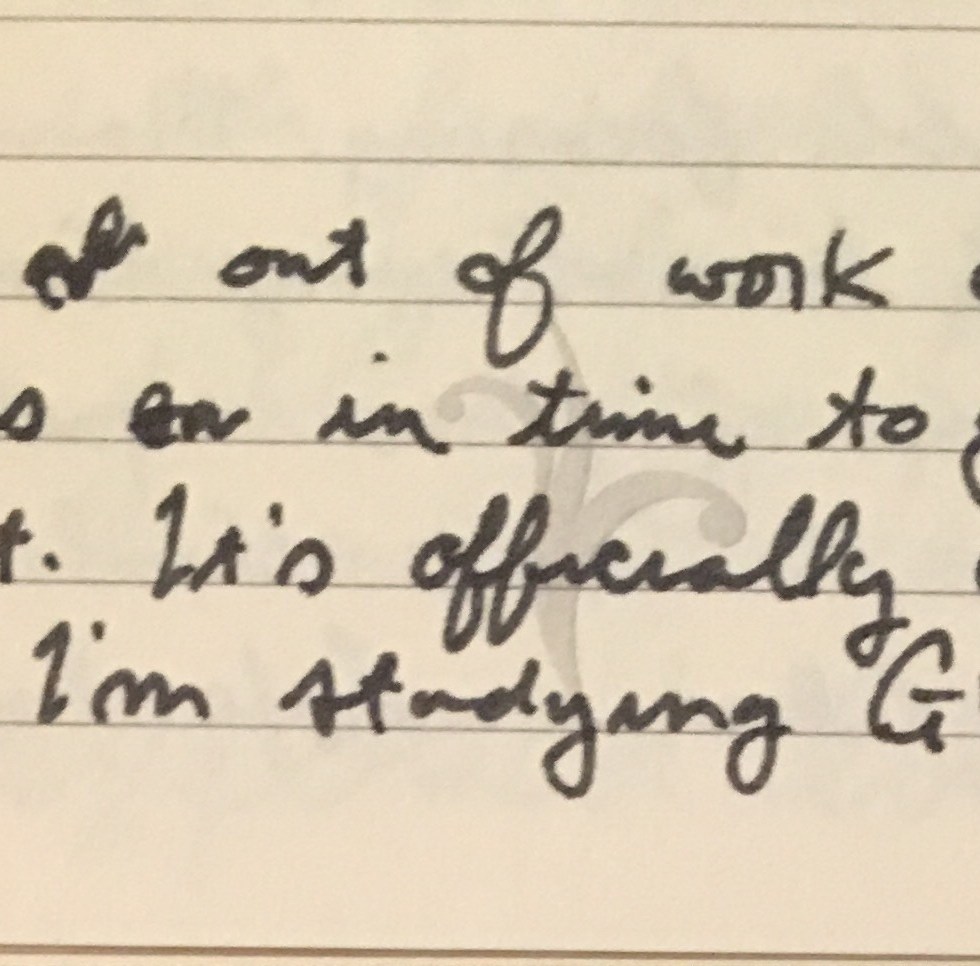 out of work
s on in time to
t. It's officially
I'm studying G